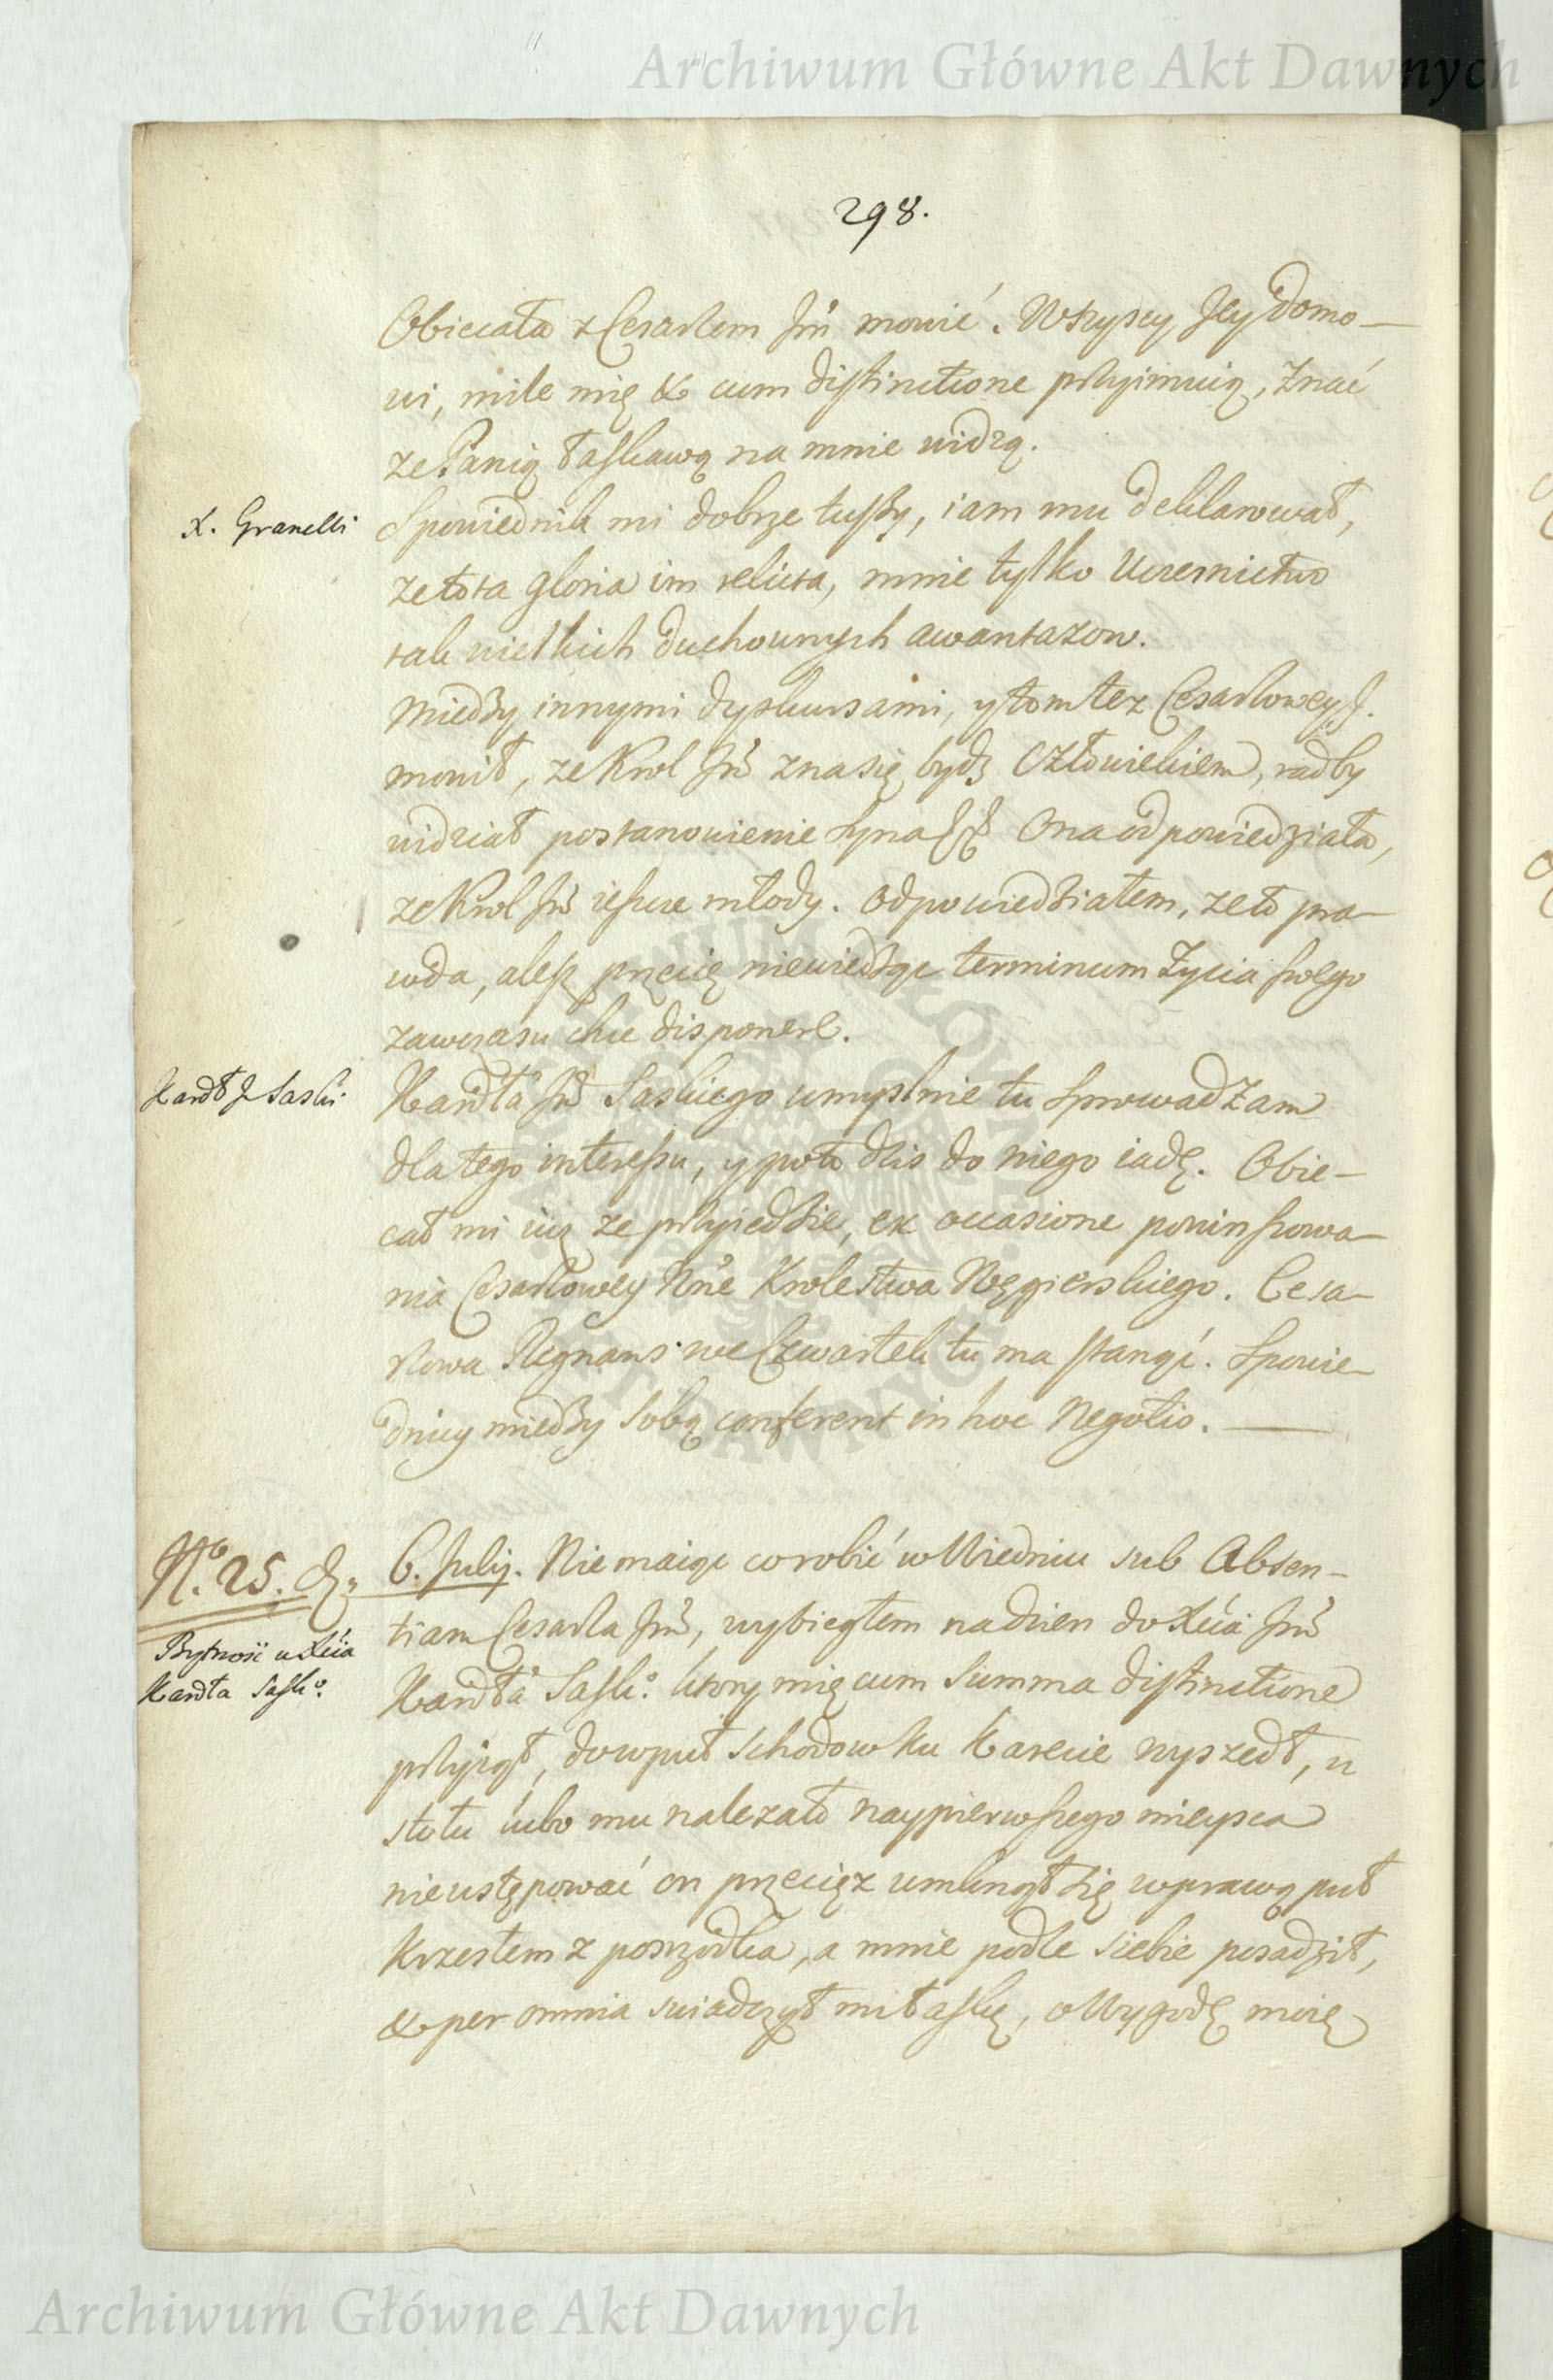 Archiwum Główne Akt Dawnych
298.
Obiecała z Cesarzem Jm̃ mowić. Wszyscy Jey Domo-
wi, mile mię & cum distinctione przyimuią, Znać
ze Panią łaskawą na mnie widzą.
X. Granelli
Spowiednik mi dobrze tuszy, iam mu deklarował,
ze tota gloria im relicta, mnie tylko Uczesnictwo
tak wielkich duchownych awantazow.
Miedzy innymi dyskursami, y tom tez Cesarzowey J.
mowił, ze Krol Jm̃ zna się bydz Człowiekiem, rad by
widział postanowienie Syna Ona odpowiedziała,
ze Krol Jm̃ ieszcze młody. Odpowiedziałem, ze to pra-
wda, alesz przecię niewiedząc terminum Zycia swego
zawczasu chce disponere.
Kardł J Saski
Kardła Jm̃ Saskiego umyslnie tu sprowadzam
dla tego interessu, y po to dzis do niego iadę. Obie-
cał mi iuz ze przyiedzie, ex occasione powinszowa-
nia Cesarzowey Krolestwa Węgierskiego. Cesa-
rzowa Regnans we Czwartek tu ma stanąć. Spowie-
dnicy miedzy sobą conferent in hoc Negotio.
No. 25. d. 6. Julij. Nie maiąc co robić w Wiedniu sub Absen-
tiam Cesarza Jm̃, wybiegłem na dzien do Xcia Jm̃
Bytność u Xcia
Kardła Sasko.
Kardła Sasko. ktory mię cum Summa distinctione
przyiął, do wpuł schodow ku Karecie wyszedł, u
stołu lubo mu nalezało naypierwszego mieysca
nieustępować on przecięz umknął się w prawą puł
krzesłem z poszrodka, a mnie podle siebie posadził,
& per omnia swiadczył mi łaskę, o Wygodę moię
Archiwum Główne Akt Dawnych